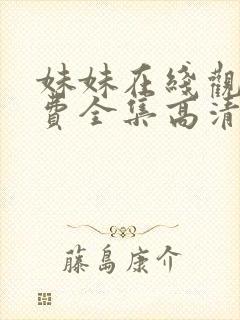 妹妹在綫觀
費全集高清
藤島康介